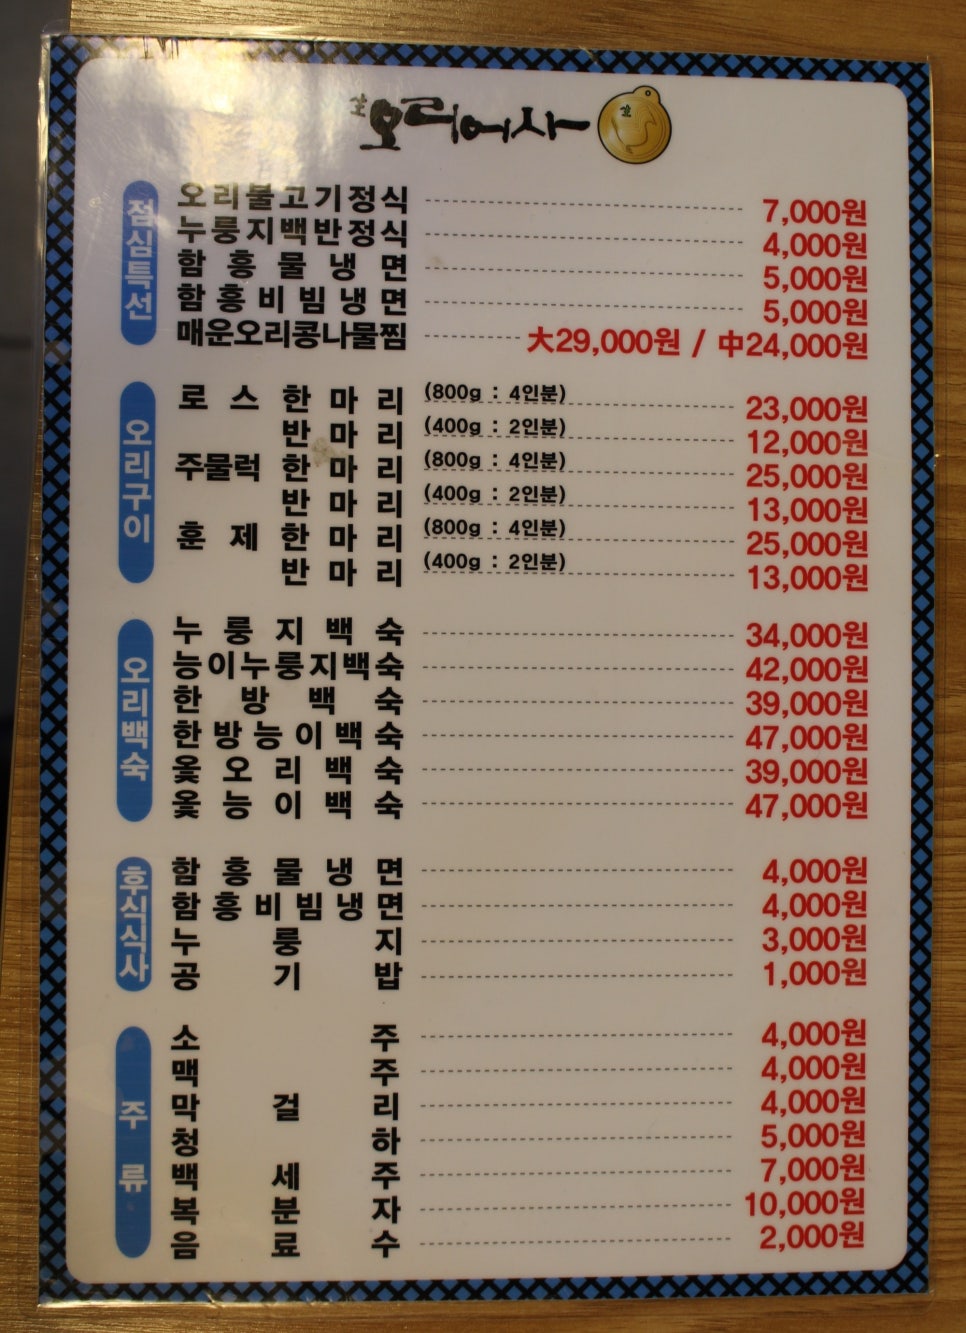 오리어사
점심특선
오리불고기정식 7,000원
누룽지백반정식 4,000원
함흥물냉면 5,000원
함흥비빔냉면 5,000원
매운오리콩나물찜 大29,000원 / 中24,000원
오리구이
로스 한마리 (800g : 4인분) 23,000원
반마리 (400g : 2인분) 12,000원
주물럭 한마리 (800g : 4인분) 25,000원
반마리 (400g : 2인분) 13,000원
훈제 한마리 (800g : 4인분) 25,000원
반마리 (400g : 2인분) 13,000원
오리백숙
누룽지백숙 34,000원
능이누룽지백숙 42,000원
한방백숙 39,000원
한방능이백숙 47,000원
옻오리백숙 39,000원
옻능이백숙 47,000원
후식식사
함흥물냉면 4,000원
함흥비빔냉면 4,000원
누룽지 3,000원
공기밥 1,000원
주류
소주 4,000원
맥주 4,000원
막걸리 4,000원
청하 5,000원
백세주 7,000원
복분자 10,000원
음료수 2,000원